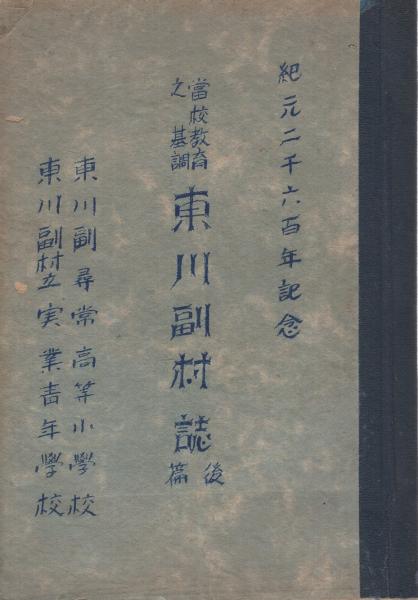 紀元二千六百年記念
當校教育
之基調
東川副村誌
後篇
東川副尋常高等小學校
東川副村立実業青年学校